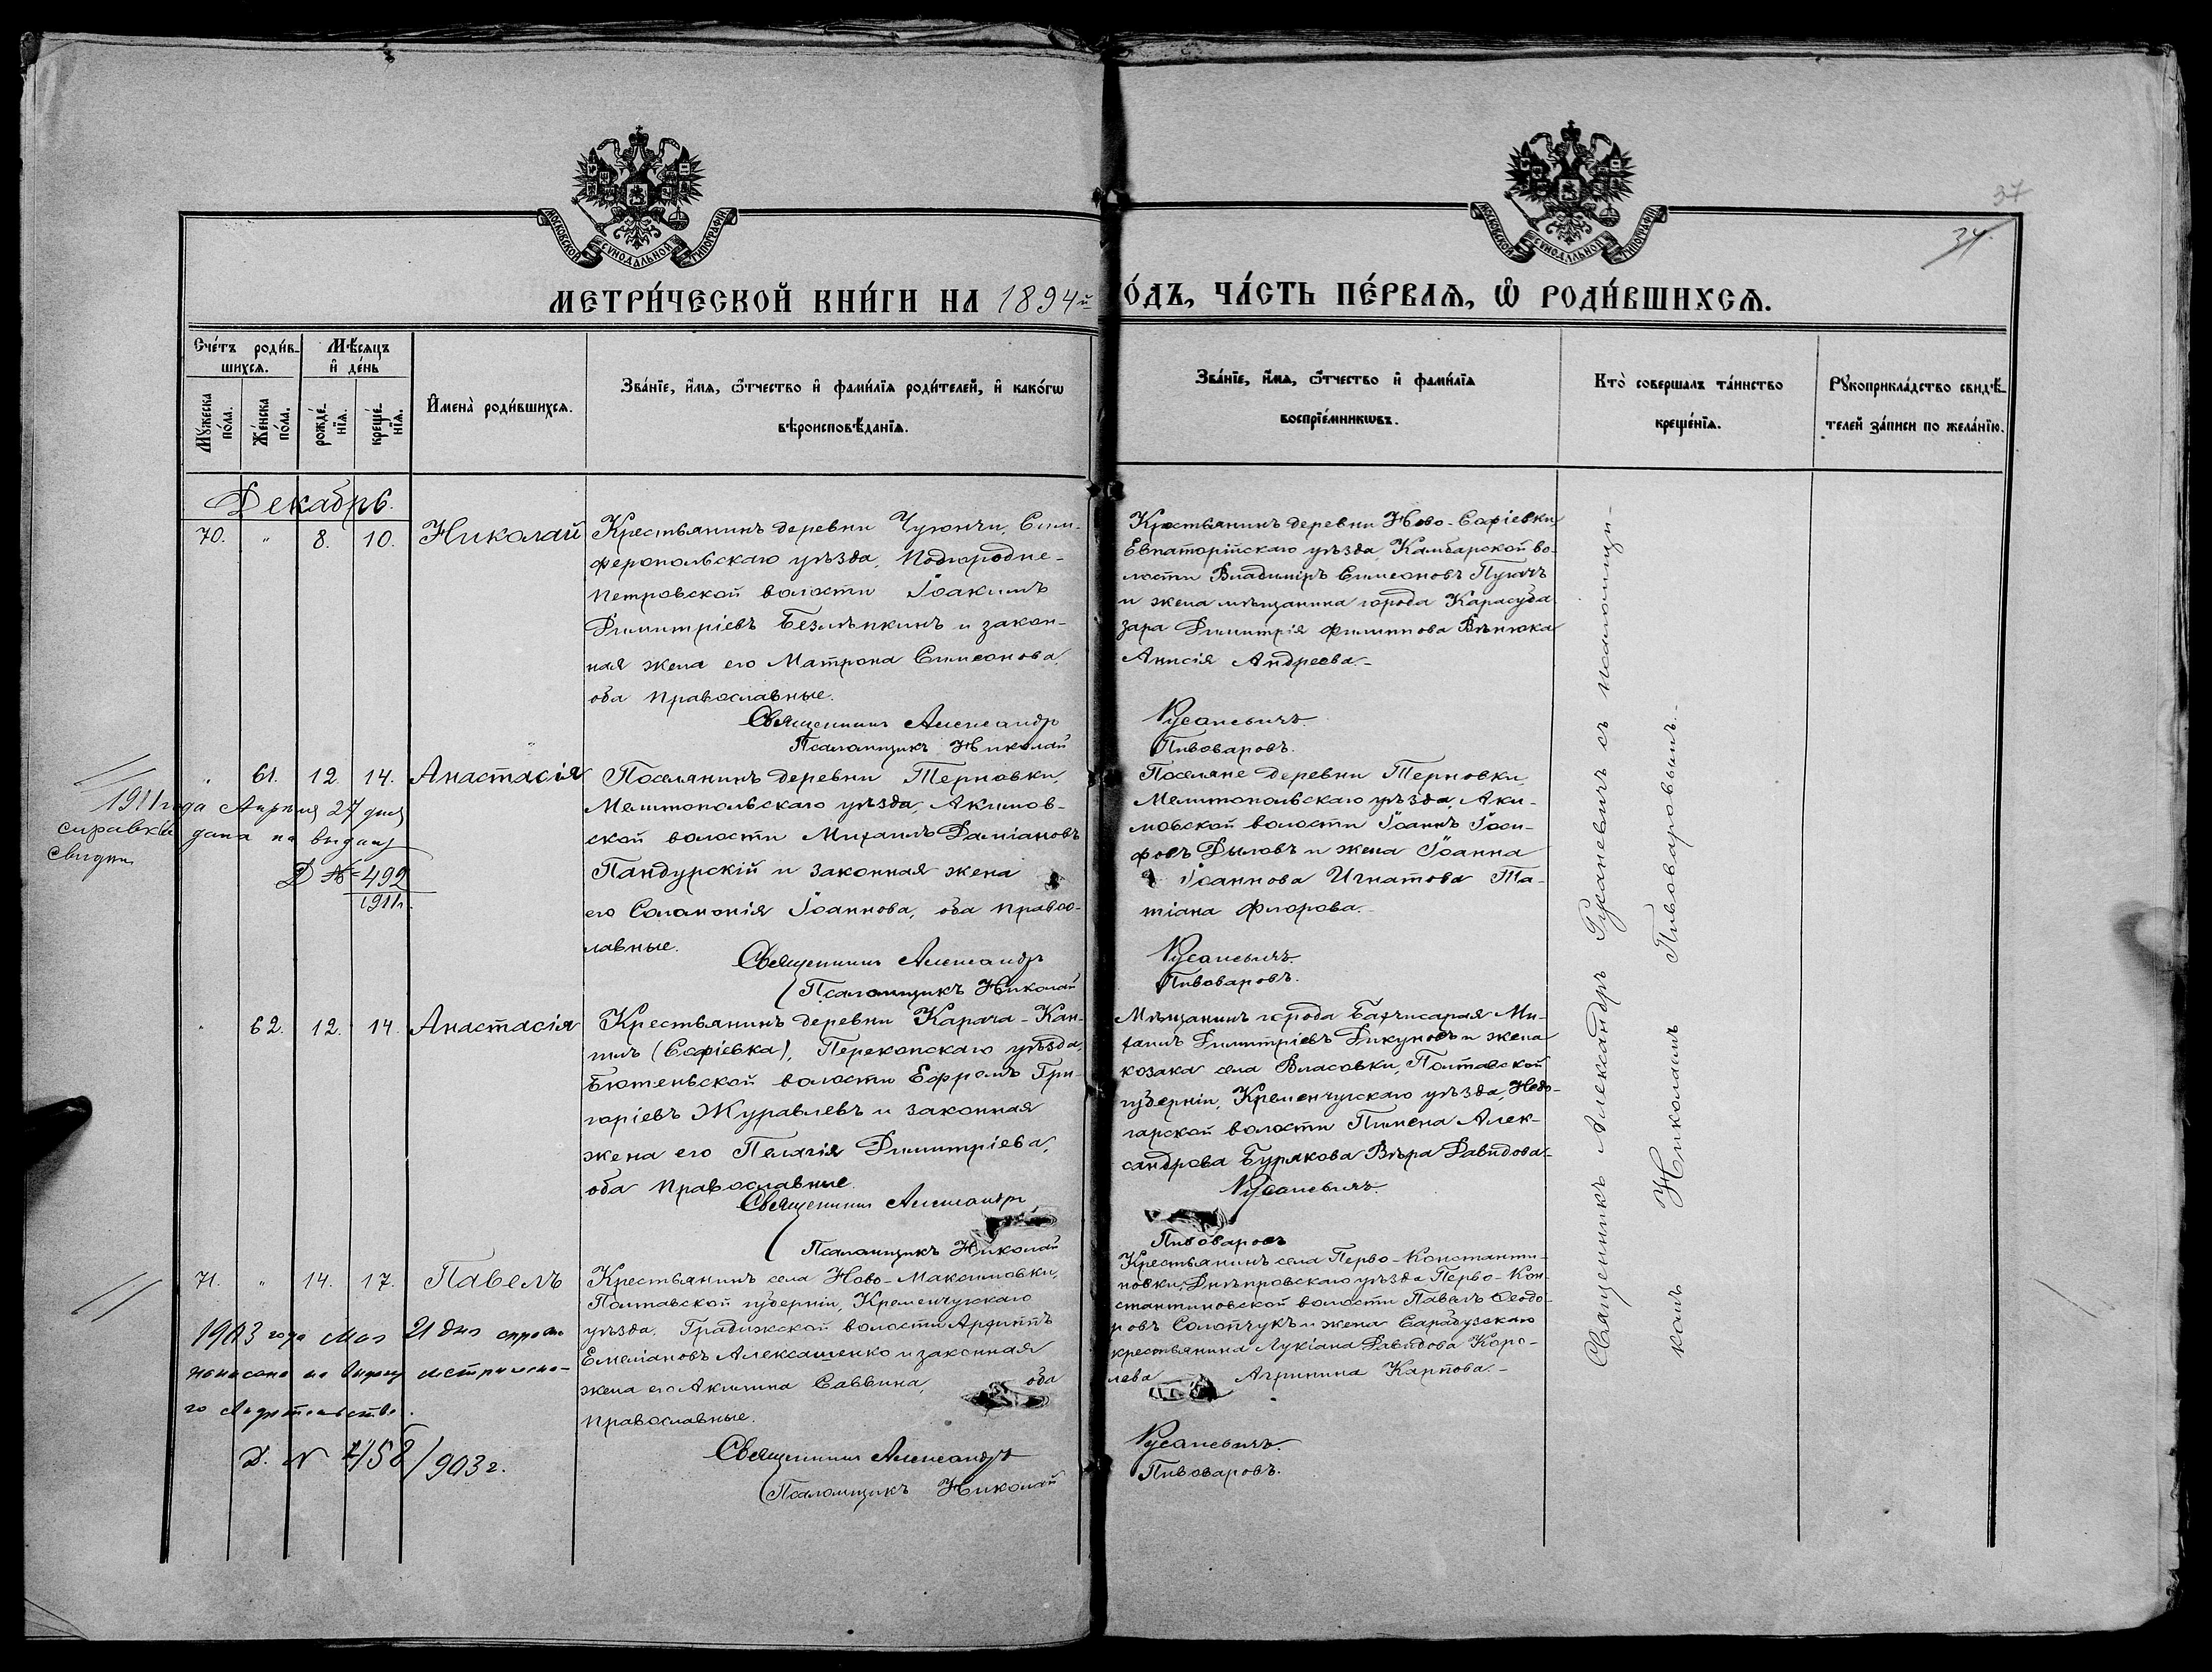 37
34.
МОСКОВСКОЙ СѴНОДАЛЬНОЙ ТИПОГРАФІИ
МОСКОВСКОЙ СѴНОДАЛЬНОЙ ТИПОГРАФІИ
МЕТРИ́ЧЕСКОЙ КНИ́ГИ НА 1894й
О́ДЪ, ЧА́СТЬ ПЕ́РВАѦ, Ѡ҆ РОДИ́ВШИХСѦ.
Сче́тъ роди́в-
шихсѧ.
Мꙋ́жеска
по́ла.
Же́нска
по́ла.
Мѣ́сѧцъ
и҆ де́нь
рожде́-
нїѧ.
креще́-
нїѧ.
И҆мена̀ роди́вшихсѧ.
Зва́нїе, и҆́мѧ, ѻ҆́тчество и҆ фами́лїѧ роди́телей, и҆ како́гѡ
вѣроисповѣ́данїѧ.
Зва́нїе, и҆́мѧ, ѻ҆́тчество и҆ фами́лїѧ
воспрїе́мникѡвъ.
Кто̀ соверша́лъ та́инство
креще́нїѧ.
Рꙋкоприкла́дство свидѣ́-
телей за́писи по жела́нїю.
Декабрь.
70.
"
8.
10.
Николай
Крестьянинъ деревни Чуюнчи, Сим-
феропольскаго уѣзда, Подгородне-
петровской волости Іоакимъ
Димитріевъ Безлѣпкинъ и закон-
ная жена его Матрона Симеонова,
оба православные.
Священникъ Александръ
Псаломщикъ Николай
Крестьянинъ деревни Ново-Софіевки
Евпаторійскаго уѣзда, Камбарской во-
лости Владиміръ Симеоновъ Пугачъ
и жена мѣщанина города Карасуба
зара Димитрія Филиппова Вѣнюка
Анисія Андреева.-
Русаневичъ.
Пивоваровъ.
"
61.
12.
14.
Анастасія
Поселянинъ деревни Терновки,
Мелитопольскаго уѣзда, Акимов-
ской волости Михаилъ Даміановъ
Пандурскій и законная жена
его Соломонія Іоаннова, оба право-
лавные.
Священникъ Александръ
Псаломщикъ Николай
Поселяне деревни Терновки,
Мелитопольскаго уѣзда, Аки-
мовской волости Іоаннъ Іоси-
фовъ Дыловъ и жена Іоанна
Іоаннова Игнатова Та-
тіана Флорова.-
Русаневичъ.
Пивоваровъ.
1911 года Апрѣля 27 дня
справка дана на выдачу
свидѣт.
Д № 492
1911г.
"
62.
12.
14.
Анастасія
Крестьянинъ деревни Карача-Кан-
гилъ (Софіевка), Перекопскаго уѣзда,
Бютеньской волости Ефремъ Гри-
горіевъ Журавлевъ и законная
жена его Пелагія Димитріева,
оба православные.
Священникъ Александръ
Псаломщикъ Николай
Мѣщанинъ города Бахчисарая Ми-
хаилъ Димитріевъ Дикуновъ и жена
козака села Власовки, Полтавской
губерніи, Кременчугскаго уѣзда, Недо-
гарской волости Пимена Алек-
сандрова Бурякова Вѣра Давидова.-
Русаневичъ.
Пивоваровъ
71.
"
14.
17.
Павелъ
Крестьянинъ села Ново-Максимовки,
Полтавской губерніи, Кременчугскаго
уѣзда, Градижской волости Архиппъ
Емеліановъ Алексашенко и законная
жена его Акилина Саввина, оба
православные.
Священникъ Александръ
Псаломщикъ Николай
Крестьянинъ села Перво-Константи-
новки, Днѣпровскаго уѣзда Перво-Кон-
стантиновской волости Павелъ Ѳеодо-
ровъ Солопчукъ и жена Сарабузскаго
крестьянина Лукіана Давидова Коро-
лева Агрипина Карпова.-
Русаневичъ.
Пивоваровъ.
1903 года Мая 21 дня
на выдачу метрическа-
го свидѣтельства.
Д. N 458/903 г.
Священникъ Александръ Русаневичъ съ псаломщи-
комъ Николаемъ Пивоваровымъ.-